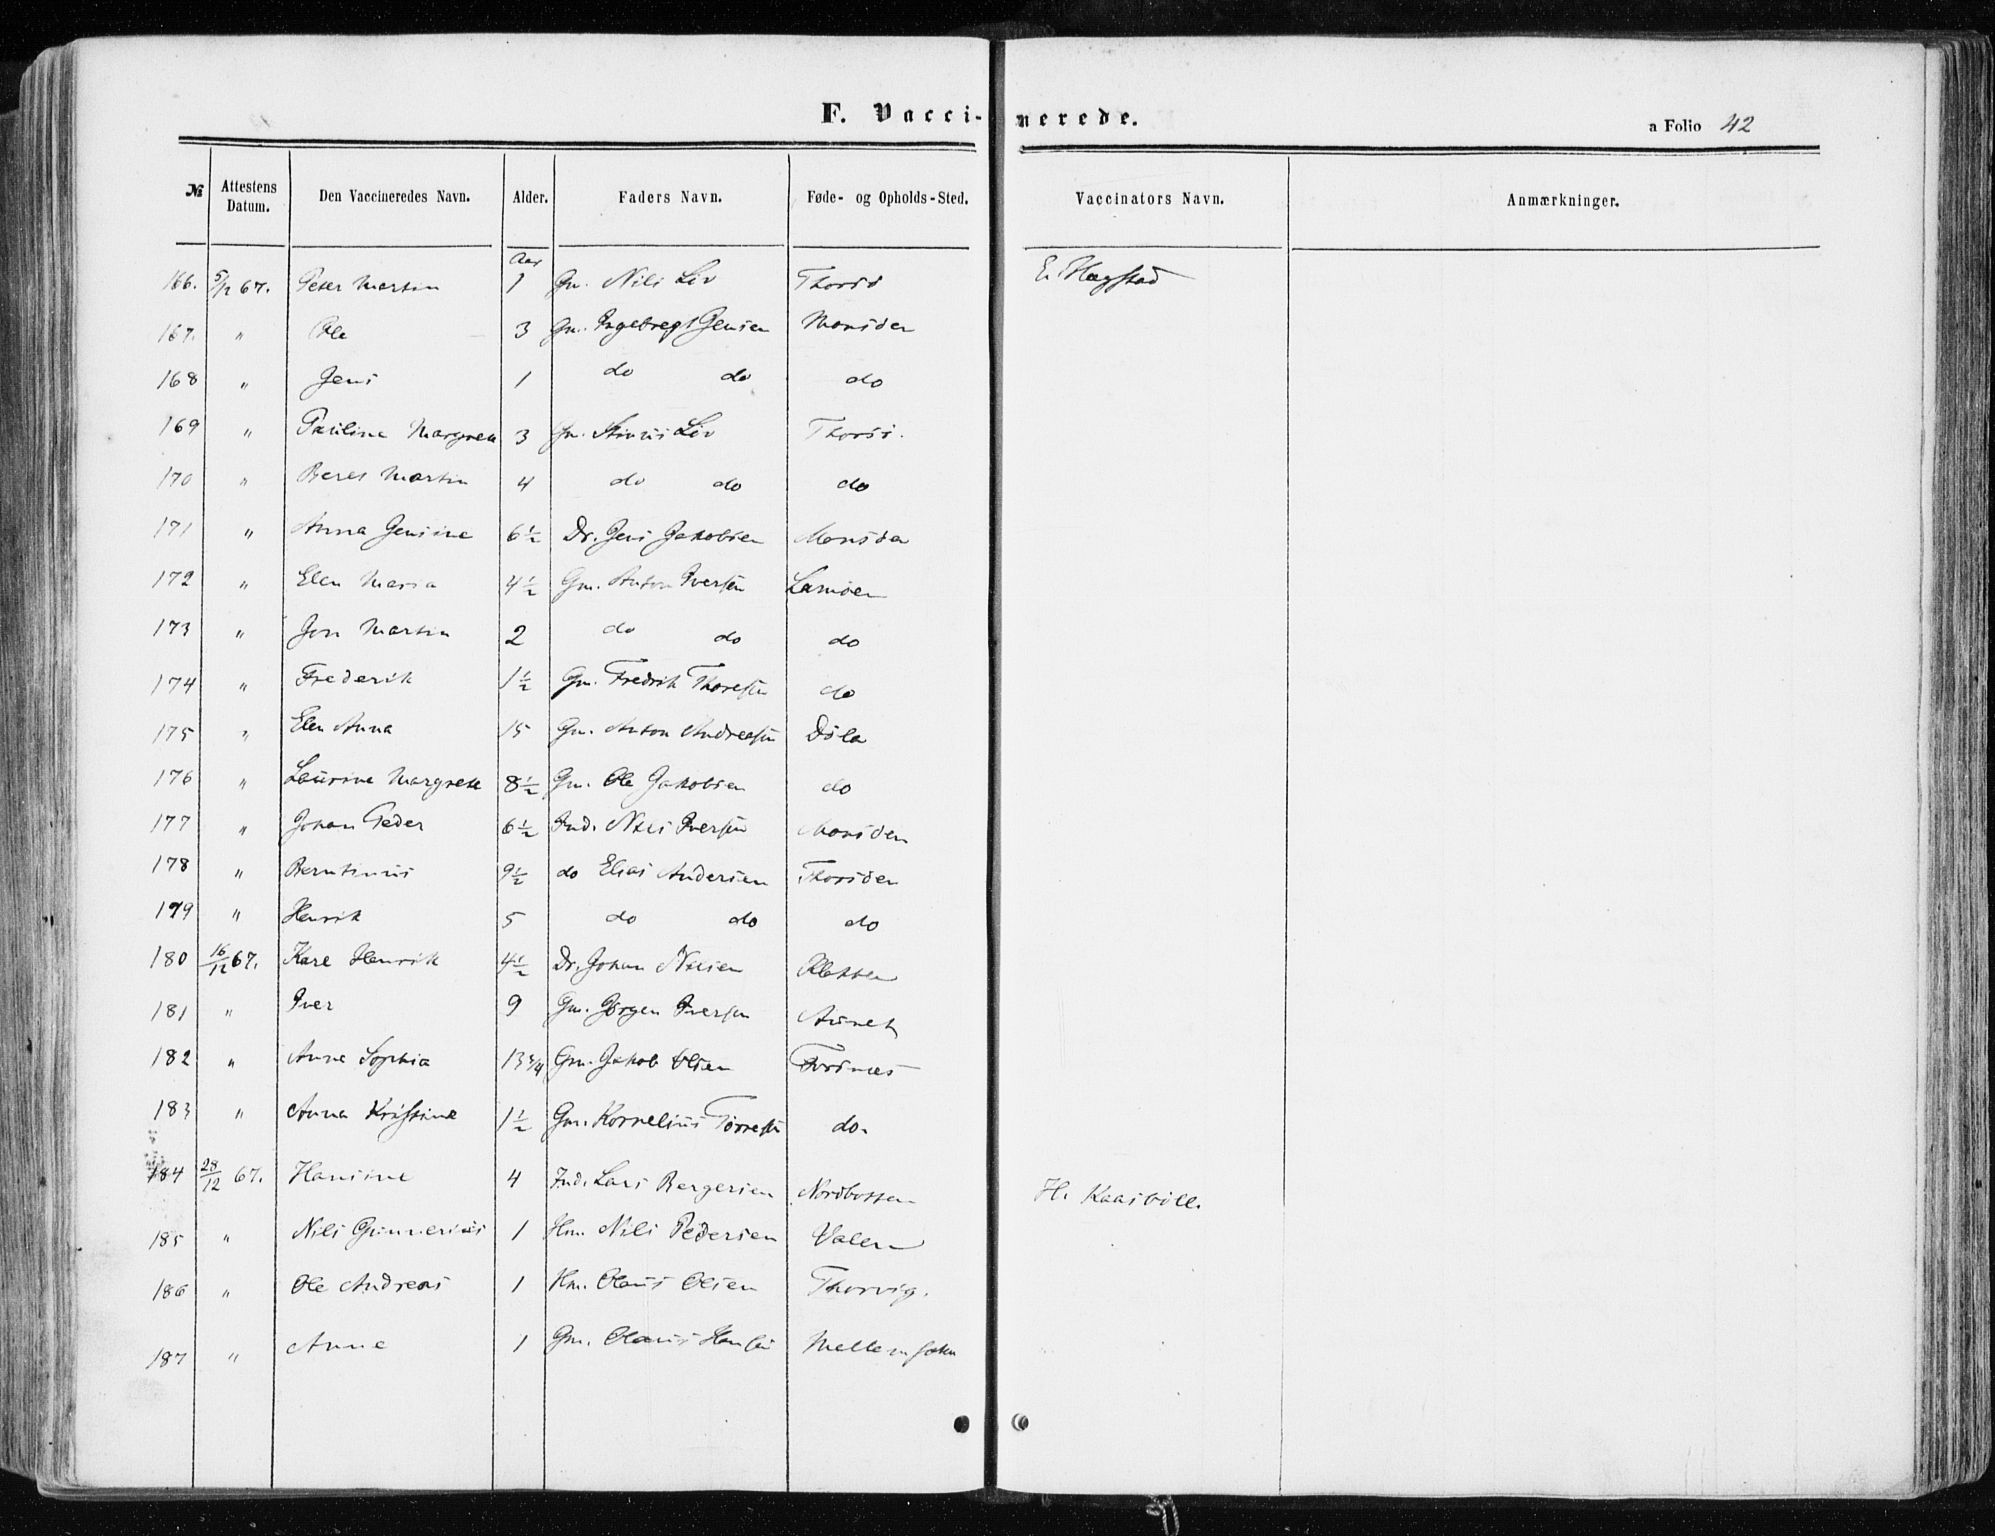 F. Vaccinerede.
a Folio 42
№ Attestens Datum. Den Vaccineredes Navn. Alder. Faders Navn. Føde- og Opholds-Sted. Vaccinators Navn. Anmærkninger.
Aar
166. 5/12 67. Peter Martin 1 Gm. Nils Liv Thorsø E. Hagstad
167. " Ole 3 Gm. Ingebregt Jensen Morsden
168 " Jens 1 do do do
169 " Pauline Margrete 3 Gm. Liv Thorsø.
170 " Martin 4 do do do
171 " Anna Jensine 6½ Dr. Jens Jakobsen
172 " Elen Maria 4½ Gm. Anton Iversen Lamoen
173 " Jon Martin 2 do do do
174 " Frederik 1½ Gm. Fredrik Thoresen do
175 " Elen Anna 15 Gm. Anton Andreasen Døla
176 " Laurine Margrete 8½ Gm. Ole Jakobsen do
177 " Johan Peder 6½ Ind. Nils Iversen Morsden
178 " Berntinus 9½ do Elias Andersen Thorsden
179 " Henrik 5 do do do
180 16/12 67. Karl Henrik 4½ Dr. Johan Nilsen Kletten
181 " Iver 9 Gm. Jørgen Iversen Aunet
182 " Anne Sophia 13¾ Gm. Jakob Olsen Forsnes
183 " Anna Kristine 1½ Gm. Kornelius Torresen do.
184 28/12 67. Hansine 4 Ind. Lars Bergersen Nordbotten H. Kaasbøll.
185 " Nils Gunnerius 1 Hm. Nils Pedersen Valen
186 " Ole Andreas 1 Hm. Olaus Olsen Thorvig.
187 " Anne 1 Gm. Olaus Hansen